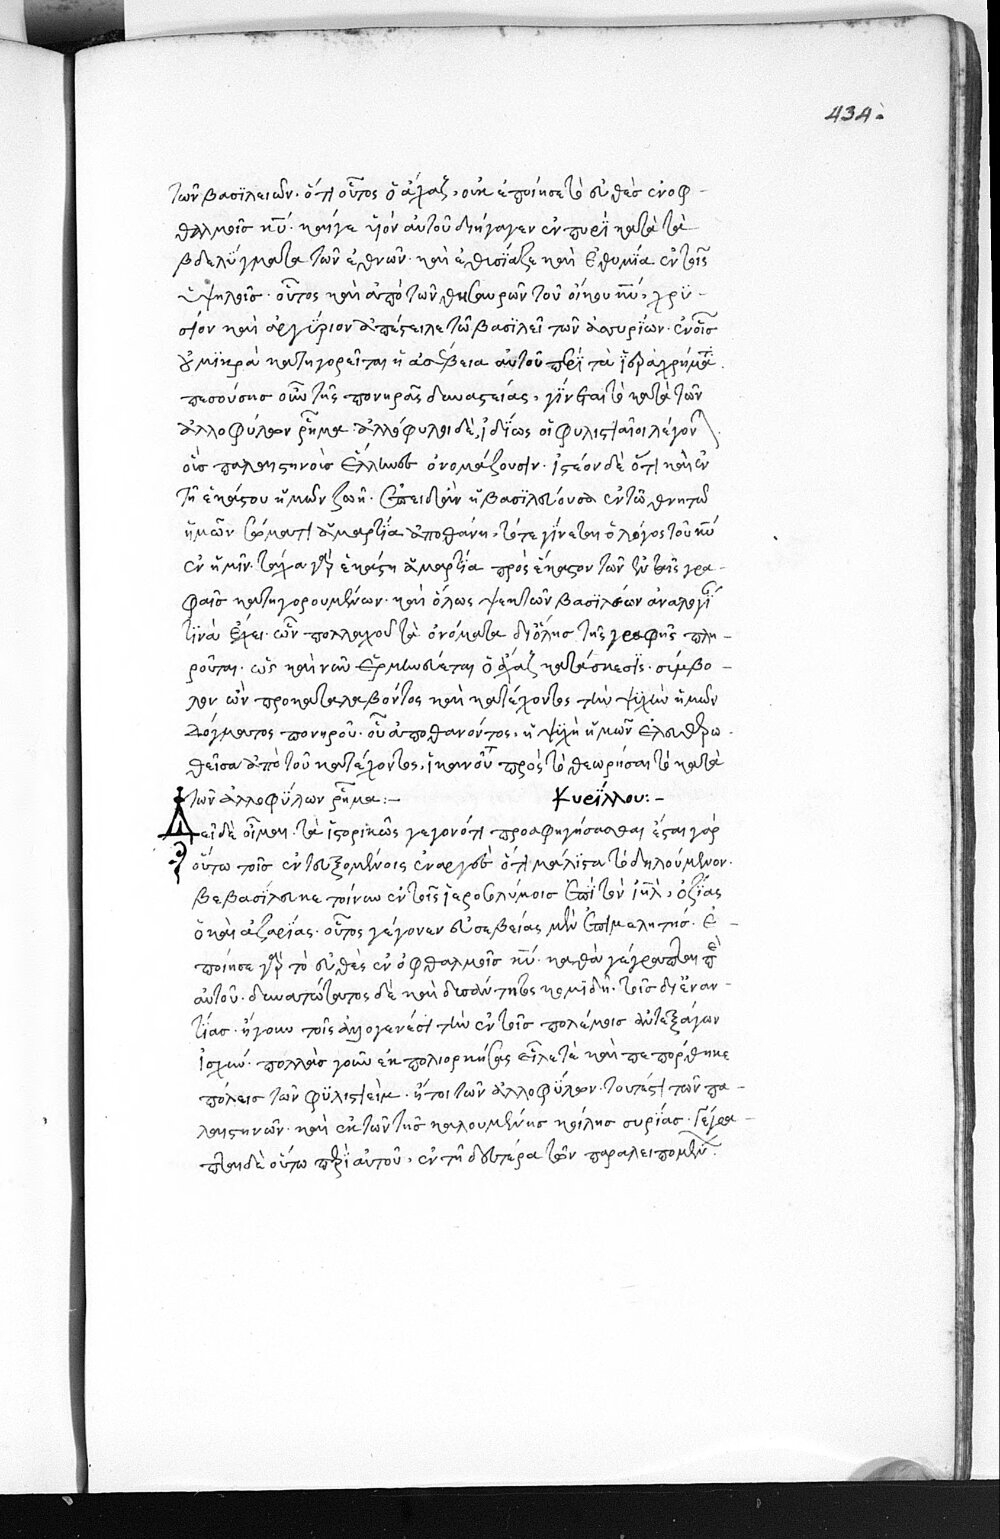 434.
τῶν βασϊλειῶν· ὅτι οὗτος ὁ ἄχαζ, οὐκ ἐποίησε τὸ εὐθὲς ἐν ὀφ-
θαλμοῖς κυ̅· καί γε υἱὸν αὐτοῦ διήγαγεν ἐν πυρῒ κατὰ τὰ
βδελύγματα τῶν ἐθνῶν· καὶ ἐθυσίαζε καὶ ἐθυμία ἐν τοῖς
ὑψηλοῖς· οὗτος καὶ ἀπὸ τῶν θησαυρῶν τοῦ οἴκου κυ̅, χρυ-
σίον καὶ ἀργύριον ἀπέστειλε τῶ βασιλεῖ τῶν ἀσυρίων· ἐν οἷς
οὐ μικρὰ κατηγορεῖται ἡ ἀσέβεια αὐτοῦ περὶ τὰ ἱερὰ χρήματα.
πεσούσης οὖν τῆς πονηρᾶς δυναστείας, γίνεται τὸ κατὰ τῶν
ἀλλοφύλων ῥῆμα· ἀλλόφυλοι δὲ, ἰδίως οἱ φυλιστιαῖοι λέγον
οὓς παλαιστηνοὺς ἕλληνες ὀνομάζουσιν· ἰστέον δὲ ὅτι καὶ ἐν
τῆ ἑκάστου ἡμῶν ζωῆ· ἐπειδὰν ἡ βασϊλεύουσα ἐν τῶ θνητῶ
ἡμῶν σώματι ἁμαρτία ἀποθάνη, τότε γίνεται ὁ λόγος τοῦ κυ̅
ἐν ἡμῖν· τάχα γὰρ ἑκάστη ἁμαρτία πρὸς ἕκαστον τῶν ἐν ταῖς γρα-
φαῖς κατηγορουμένων· καὶ ὅλως ψεκτῶν βασϊλέων ἀναλογί
τινὰ ἔχει· ὧν πολλαχοῦ τὰ ὀνόματα δι' ὅλης τῆς γραφῆς πλη-
ροῦται· ὡς καὶ νῦν ἑρμηνεύεται ὁ ἄχαζ κατάσχεσις· σύμβο-
λον ὢν προκαταλαβόντος καὶ κατέχοντος τὴν ψυχὴν ἡμῶν
δόγματος πονηροῦ· οὗ ἀποθανόντος, ἡ ψυχὴ ἡμῶν ἐλευθερω-
θεῖσα ἀπὸ τοῦ κατέχοντος, ἱκανοῦται πρὸς τὸ θεωρῆσαι τὸ κατὰ
τῶν ἀλλοφύλων ῥῆμα:– Κυρίλλου:–
Δεῖ δὲ οἶμαι· τὰ ἱστορικῶς γεγονότα προαφηγήσασθαι ἔσται γὰρ
οὕτω τοῖς ἐντευξομένοις ἐναργὲς ὅτι μάλιστα τὸ δηλούμενον.
βεβασίλευκε τοίνυν ἐν τοῖς ἱεροσολύμοις ἐπὶ τὸν ιη̅λ, ὀζίας
ὁ καὶ ἀζαρίας· οὗτος γέγονεν εὐσεβείας μὲν ἐπιμελητής· ἐ-
ποίησε γὰρ τὸ εὐθὲς ἐν ὀφθαλμοῖς κυ̅· καθὰ γέγραπται περὶ
αὐτοῦ· δυνατώτατος δὲ καὶ δεινότητος κομιδῆ· τοῖς δι' ἐναν-
τίας· ἤγουν τοῖς ἀλλογενέσι τὴν ἐν τοῖς πολέμοις ἀντεξάγων
ἰσχύν· πολλὰς γοῦν ἐκπολιορκήσας εἷλέ τε καὶ πεπόρθηκε
πόλεις τῶν φυλιστιεὶμ· ἤτοι τῶν ἀλλοφύλων· τουτέστι τῶν πα-
λαιστηνῶν· καὶ ἐκ τῶν τῆς καλουμένης κοίλης συρίας· γέγρα-
πται δὲ οὕτω περὶ αὐτοῦ, ἐν τῆ δευτέρα τῶν παραλειπομένων.